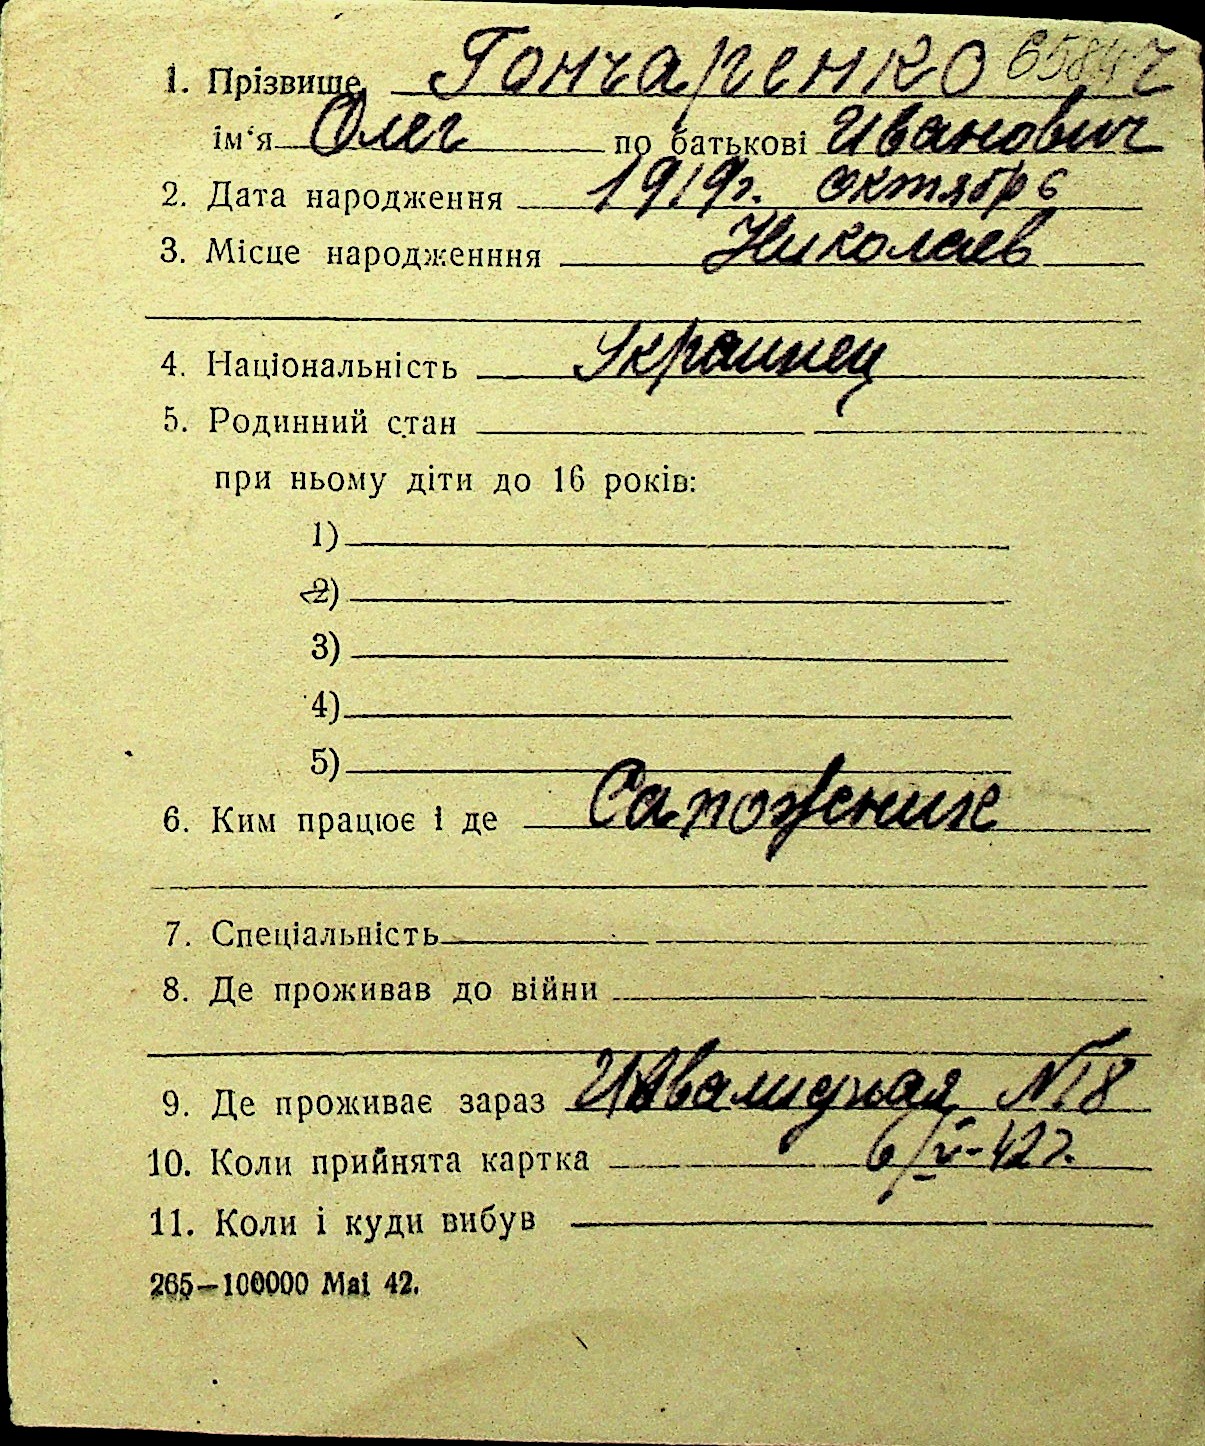 1. Прізвище Гончаренко 6584 ч
ім‘я Олег по батькові Иванович
2. Дата народження 1919г. октябрь
3. Місце народженння Николаев
4. Національність Украинец
5. Родинний стан
при ньому діти до 16 років:
1)
2)
3)
4)
5)
6. Ким працює і де Сапожник
7. Спеціальність
8. Де проживав до війни
9. Де проживає зараз Инвалидная №18
10. Коли прийнята картка 6/V-42г.
11. Коли і куди вибув
265—100000 Mai 42.